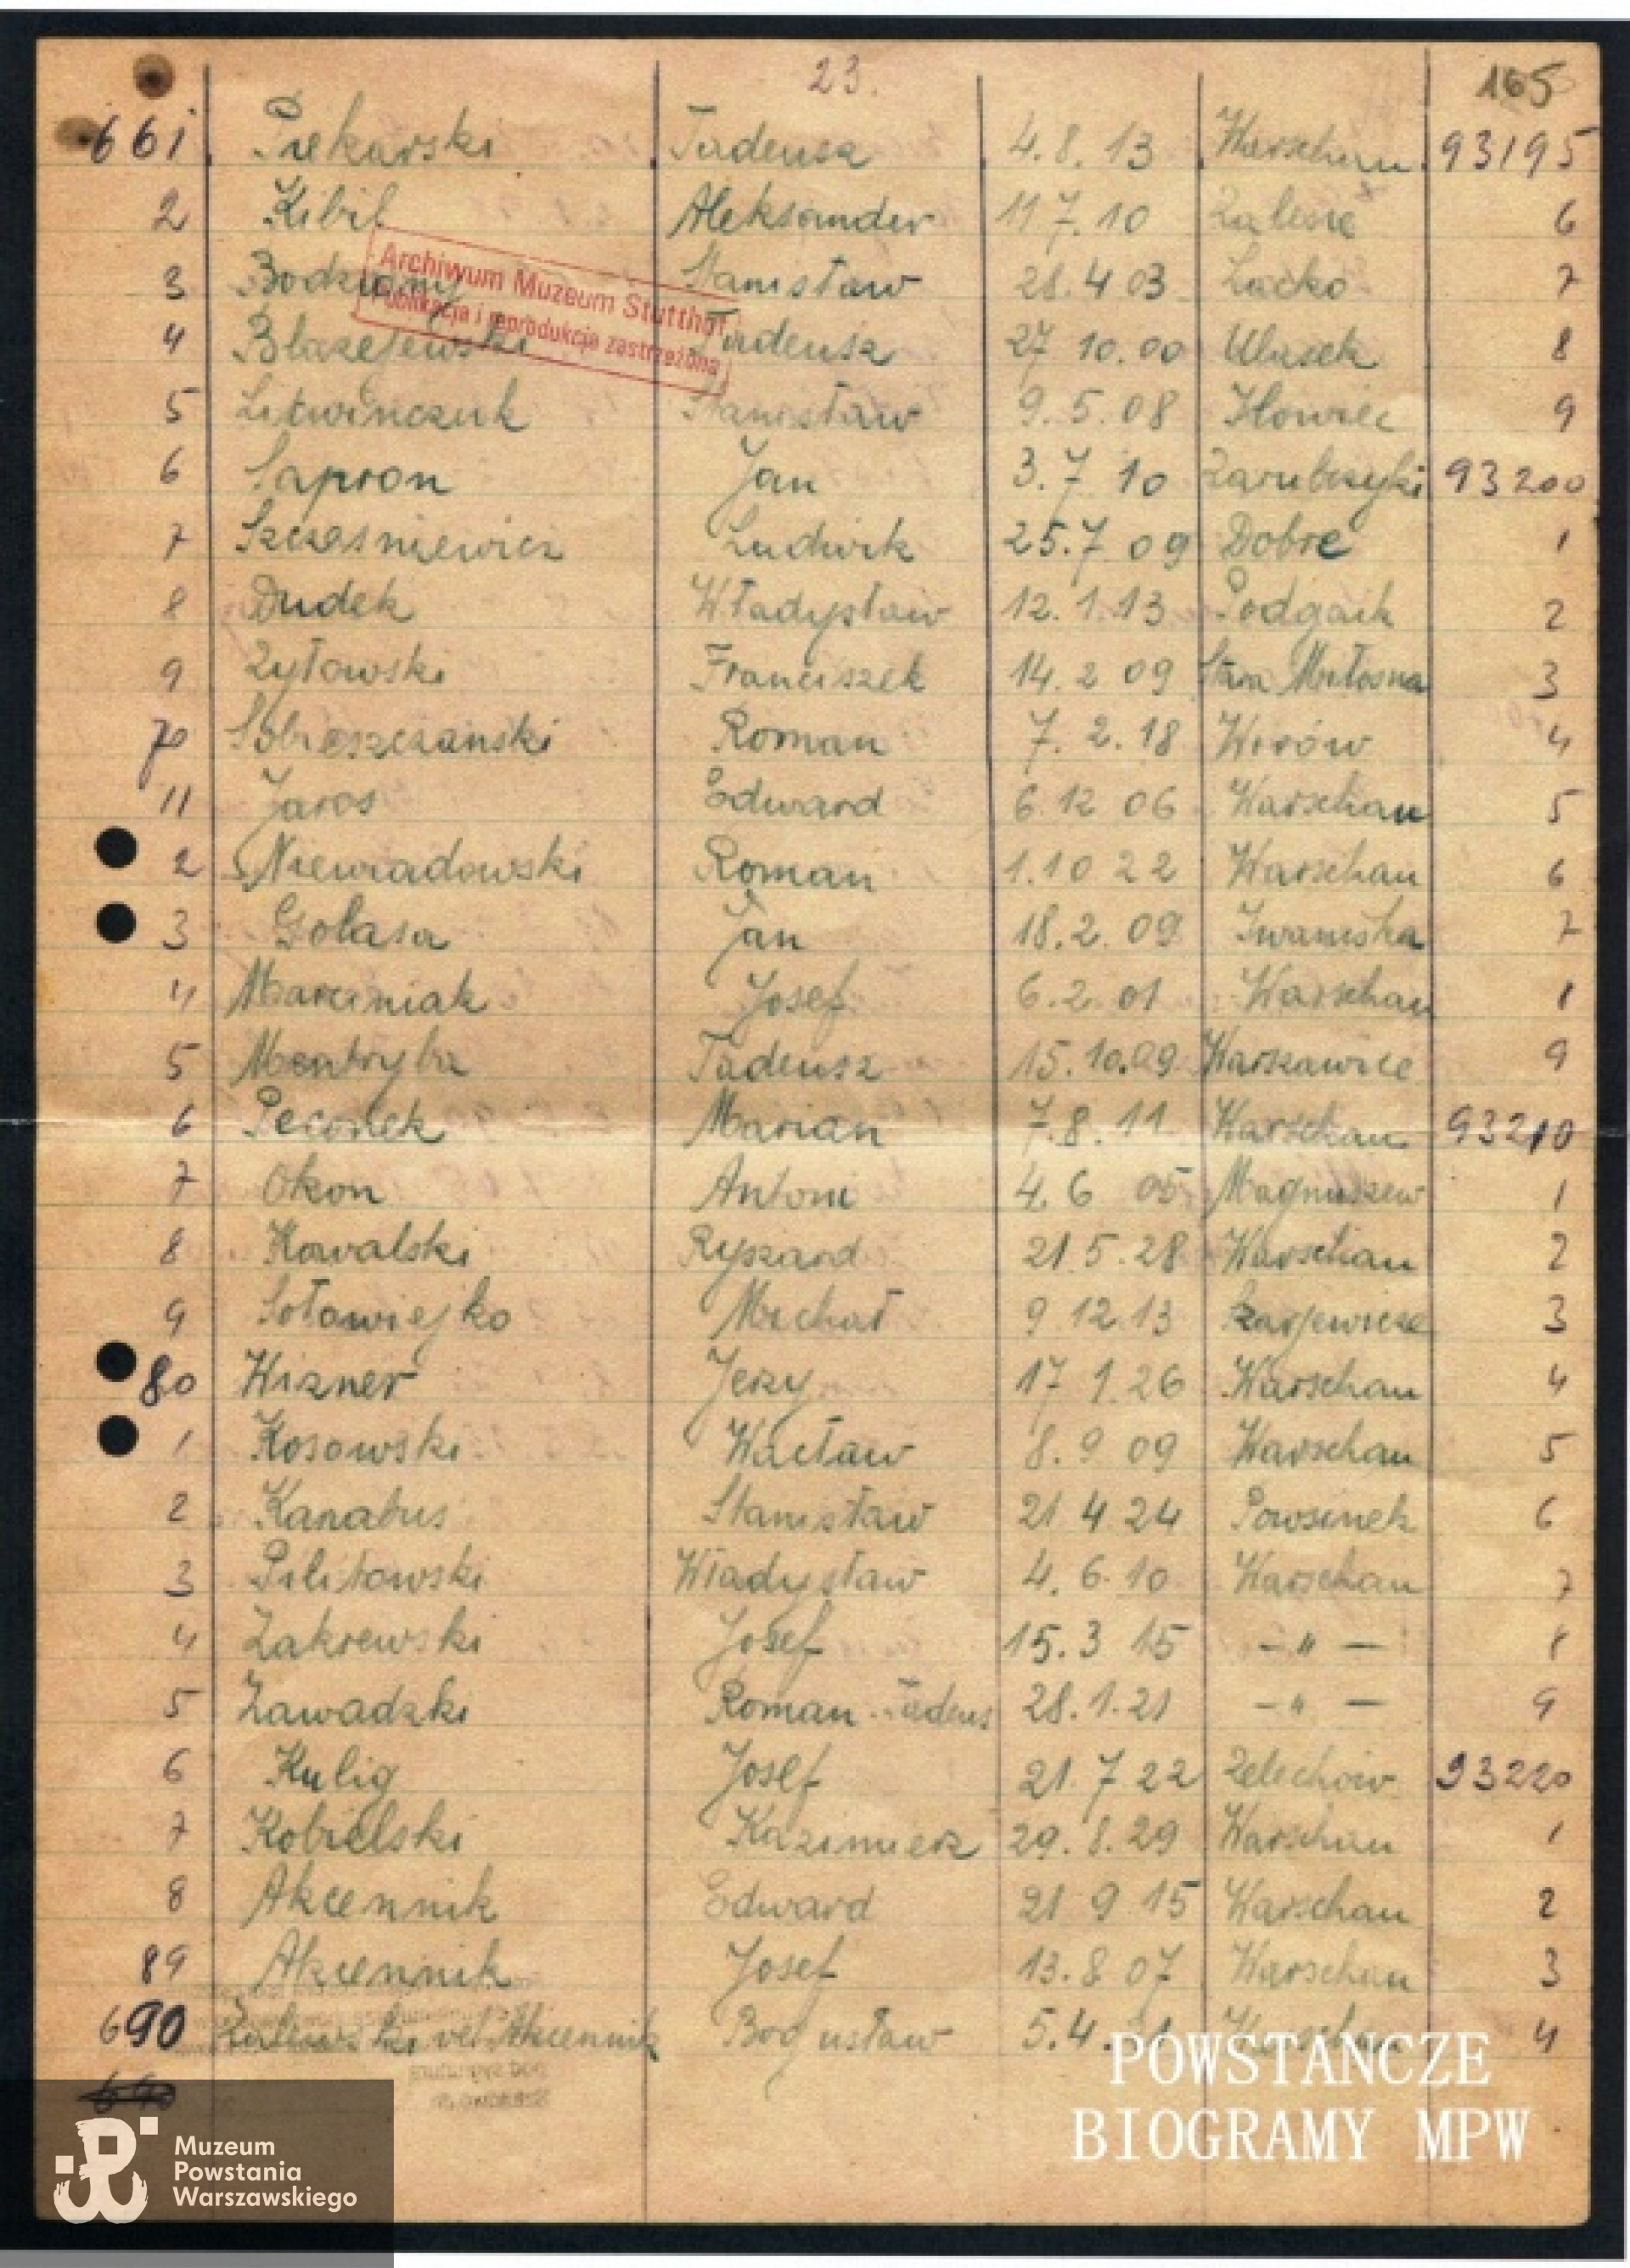 23.
165
661 Piekarski Tadeusz 4.8.13 Warschau 93195
2 Kibil Aleksander 11 7.10 Zalesie 6
3 Stanisław 28.4 03 Lacko 7
4 Blazejewski Tadeusz 27 10.00 Ulasek 8
5 Litwinczuk Stanisław 9.5.08 Iłowiec 9
6 Sapron Jan 3.7 10 93200
7 Szczesniewicz Ludwik 25.7 09 Dobre 1
8 Dudek Władysław 12.1.13 Podgaik 2
9 Zytowski Franciszek 14.2 09 Stara Miłosna 3
70 Sobieszczanski Roman 7.2.18 Wirów 4
11 Jaros Edward 6.12 06 Warschau 5
2 Niewiadowski Roman 1.10 22 Warschau 6
3 Golasa Jan 18.2.09 Iwaniska 7
4 Marciniak Josef 6.2.01 Warschau 8
5 Tadeusz 15.10.09 Warszawice 9
6 Peconek Marian 7.8.11 Warschau 93210
7 Okon Antoni 4.6 05 Magnuszew 1
8 Kowalski Ryszard 21.5.28 Warschau 2
9 Sołowiejko Michał 9 12.13 3
80 Wizner Jerzy 17 1.26 Warschau 4
1 Kosowski Wacław 8.9 09 Warschau 5
2 Kanabus Stanisław 21 4 24 Powsinek 6
3 Pilitowski Władysław 4.6.10 Warschau 7
4 Zakrewski Josef 15.3 15 - " - 8
5 Zawadzki Roman Tadeus 28.1.21 - " - 9
6 Kulig Josef 21.7 22 Zelechów 93220
7 Kobielski Kazimierz 29.8.29 Warschau 1
8 Akcennik Edward 21 9 15 Warschau 2
89 Akcennik Josef 13.8 07 Warschau 3
690 vel Akcennik Bogusław 5.4. Warschau 4
690
Archiwum Muzeum Stutthof
Publikacja i reprodukcja zastrzeżona
POWSTAŃCZE
BIOGRAMY MPW
Muzeum
Powstania
Warszawskiego